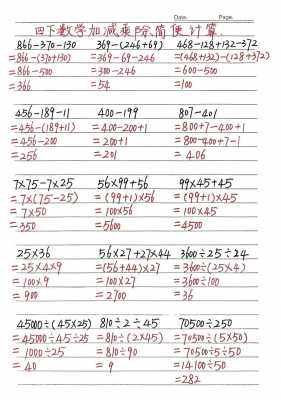 Date. Page.
四下数学加减乘除简便计算.
866-370-130 369-(246+69) 468-128+132-372
=866-(370+130) =369-69-246 =(468+132)-(128+372)
=866-500 =300-246 =600-500
=366 =54 =100
456-189-11 400-199 807-401
=456-(189+11) =400-200+1 =800+7-400+1
=456-200 =200+1 =800-400+7-1
=256 =201 =406
7×75-7×25 56×99+56 99×45+45
=7×(75-25) =(99+1)×56 =(99+1)×45
=7×50 =100×56 =100×45
=350 =5600 =4500
25×36 56×27+27×44 3600÷25÷24
=25×4×9 =(56+44)×27 =3600÷(25×4)
=100×9 =100×27 =3600÷100
=900 =2700 =36
45000÷(45×25) 810÷2÷45 70500÷250
=45000÷45÷25 =810÷(2×45) =70500÷(5×50)
=1000÷25 =810÷90 =70500÷5÷50
=40 =9 =14100÷50
=282